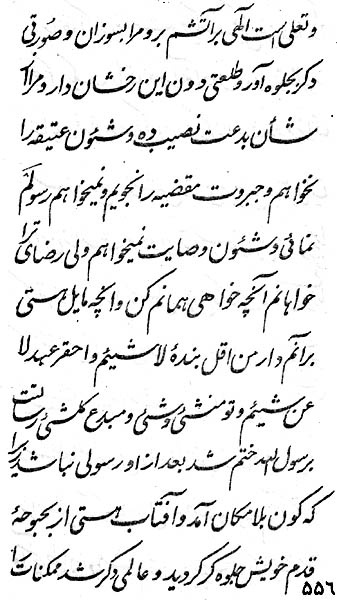 و تعلی است الهی بر آتشم بر و مرا بسوزان و صورتی
دگر بجلوه آور و طلعتی دون این رخشان دار و مرا
شأن بدعت نصیب ده و شئون عتیقه را
نخواهم و جبروت مقضیه را نجویم و نمیخواهم رسولم
نمائی و شئون وصایت نمیخواهم ولی رضای ترا
خواهانم آنچه خواهی همانم کن و آنچه مایل هستی
بر آنم دار من اقل بنده لا شیئم و احقر عبد لا
عن شیئم و تو منشی و شئی و مبدع کلشئی رسالت
برسول الله ختم شد بعد از او رسولی نباشد زیرا
که کون بلا مکان آمد و آفتاب هستی از بحبوحه
قدم خویش جلوه گر گردید و عالمی دگر شد ممکنات را
۵۵۶